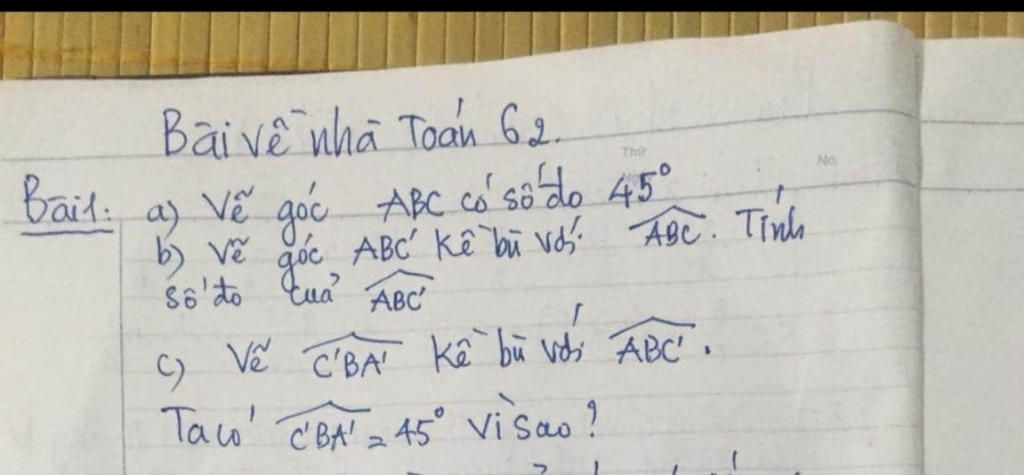 Bài về nhà Toán 6 2.
Thứ
No.
Bài 1: a) Vẽ góc ABC có số đo 45°
b) Vẽ góc ABC' kề bù với ABC. Tính
số đo của ABC'
c) Vẽ C'BA' kề bù với ABC'.
Ta có C'BA' = 45° Vì sao?